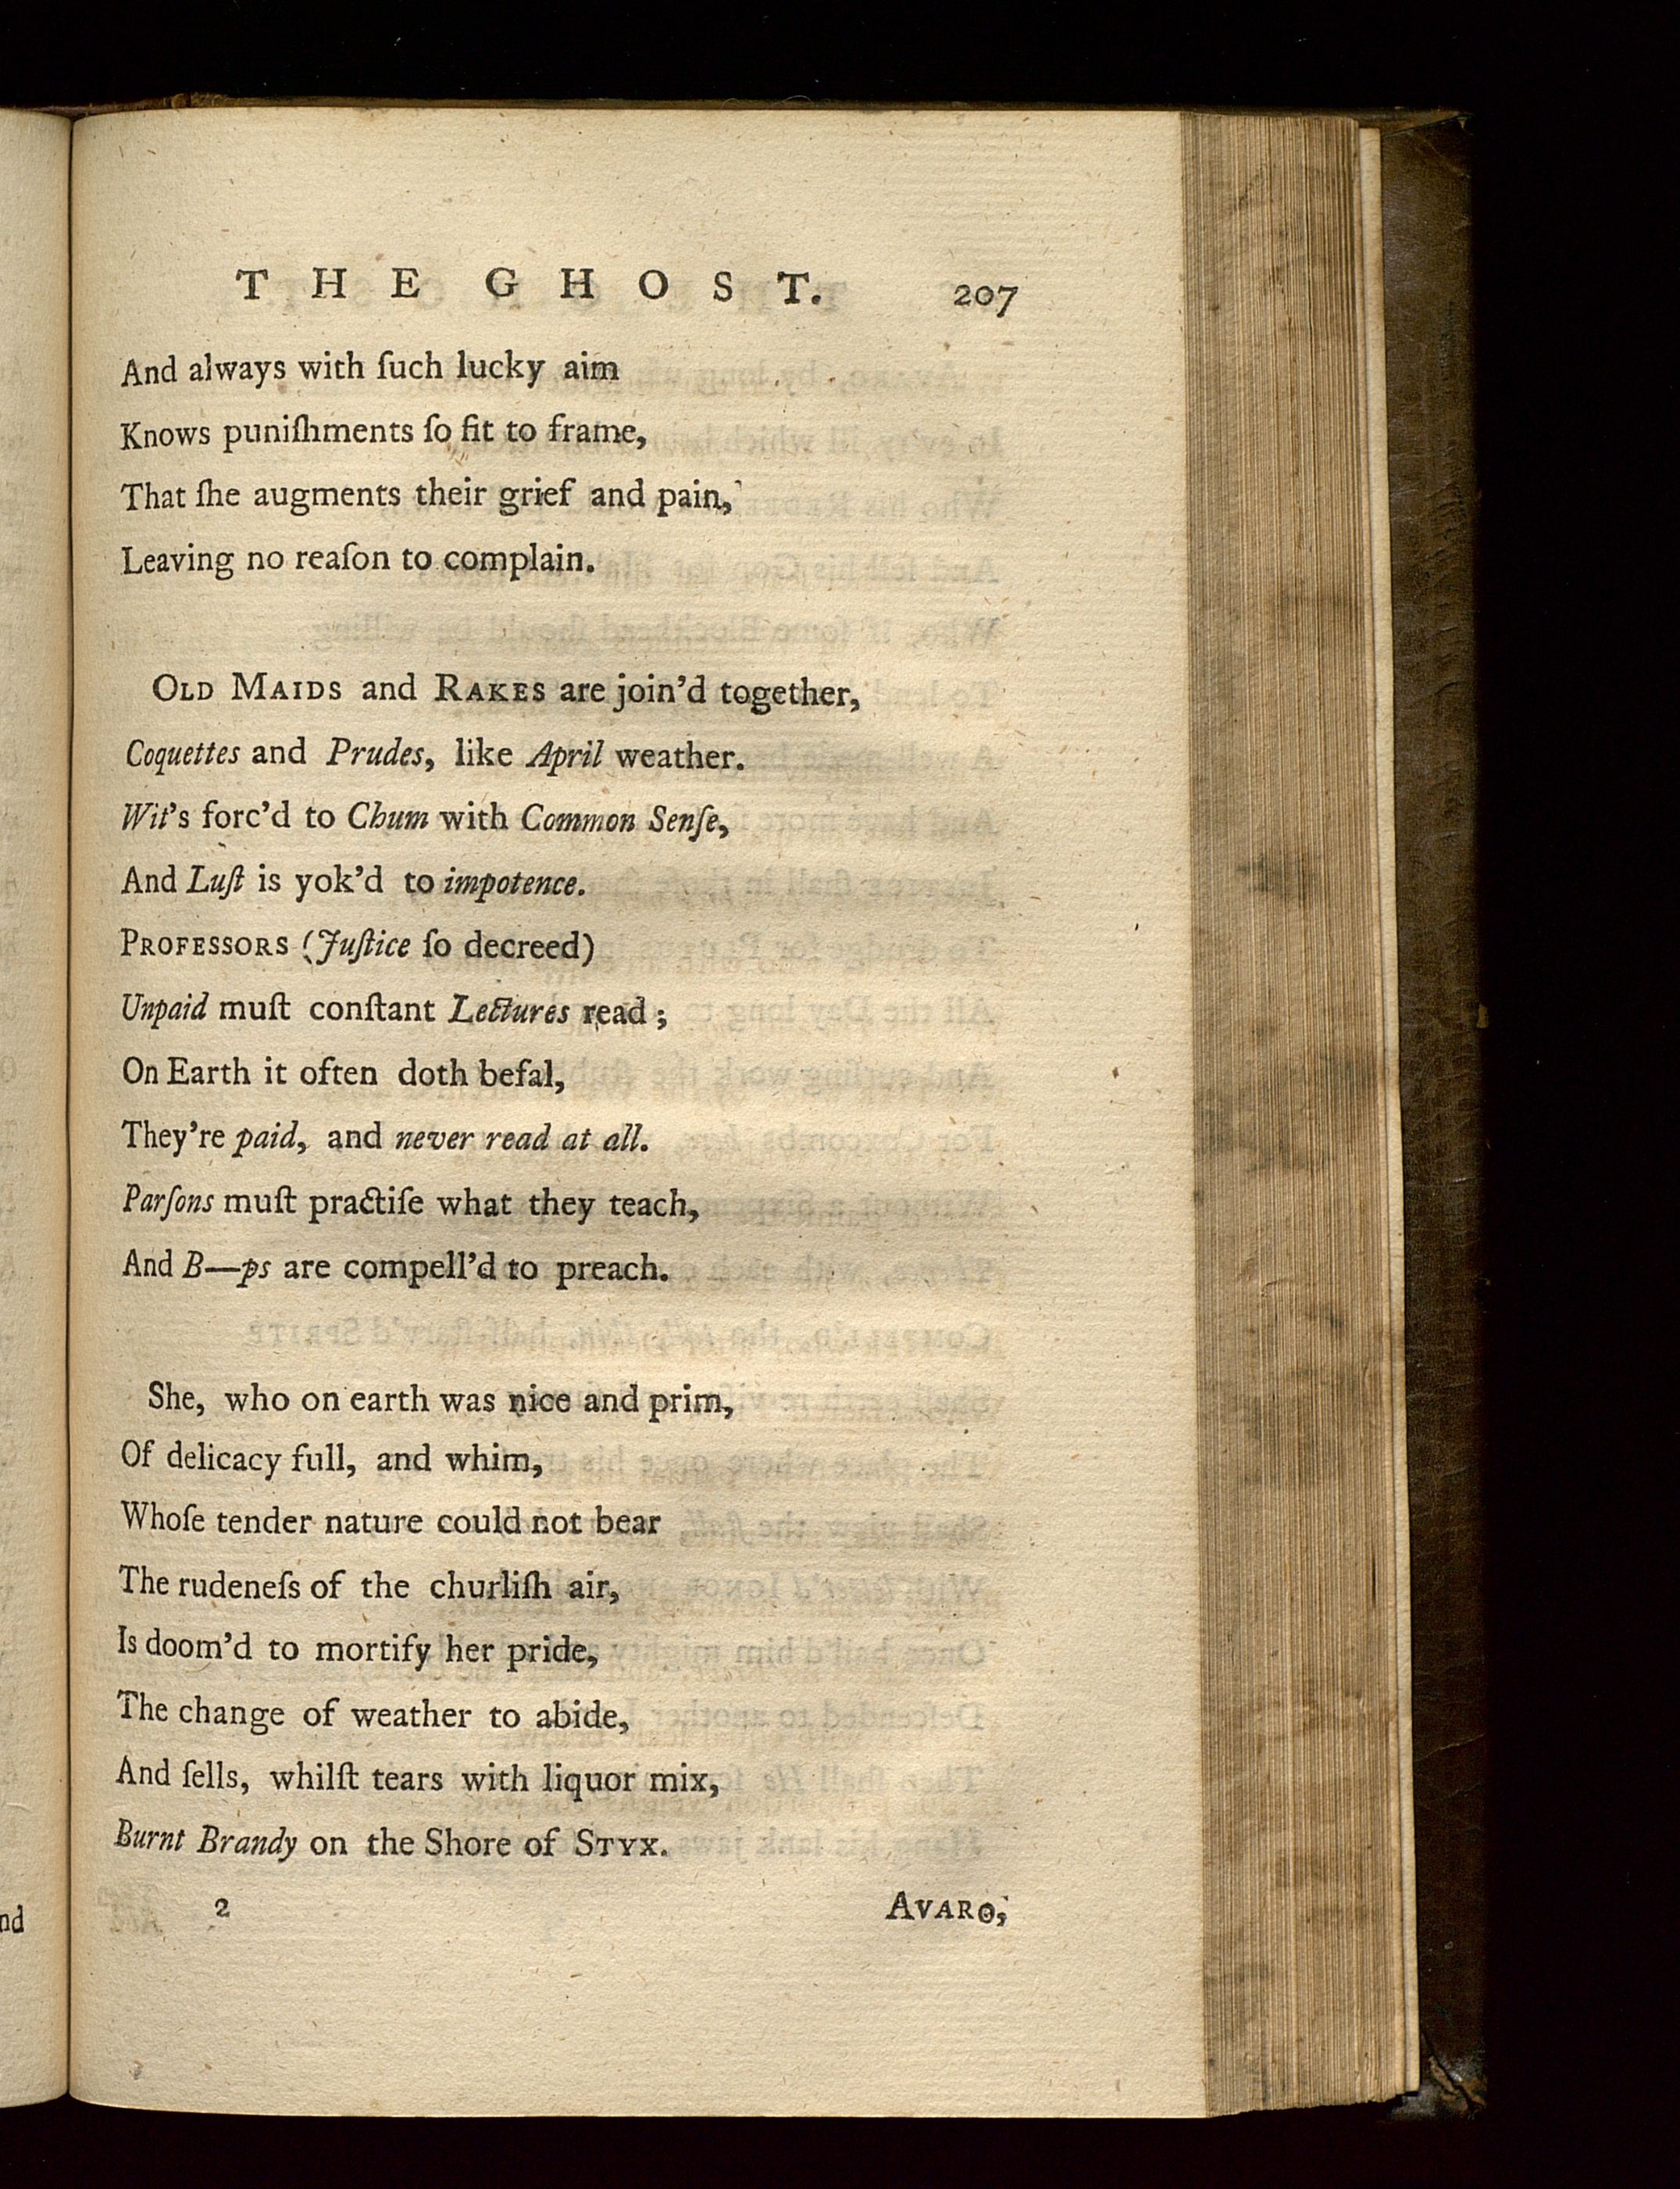 THE GHOST. 207
And always with ſuch lucky aim
Knows puniſhments ſo fit to frame,
That ſhe augments their grief and pain,
Leaving no reaſon to complain.
OLD MAIDS and RAKES are join'd together,
Coquettes and Prudes, like April weather.
Wit's forc'd to Chum with Common Senſe,
And Luſt is yok'd to impotence.
PROFESSORS (Juſtice ſo decreed)
Unpaid muſt conſtant Lectures read;
On Earth it often doth befal,
They're paid, and never read at all.
Parſons muſt practiſe what they teach,
And B—ps are compell'd to preach.
She, who on earth was nice and prim,
Of delicacy full, and whim,
Whoſe tender nature could not bear
The rudeneſs of the churliſh air,
Is doom'd to mortify her pride,
The change of weather to abide,
And ſells, whilſt tears with liquor mix,
Burnt Brandy on the Shore of STYX.
2 AVARO,
nd